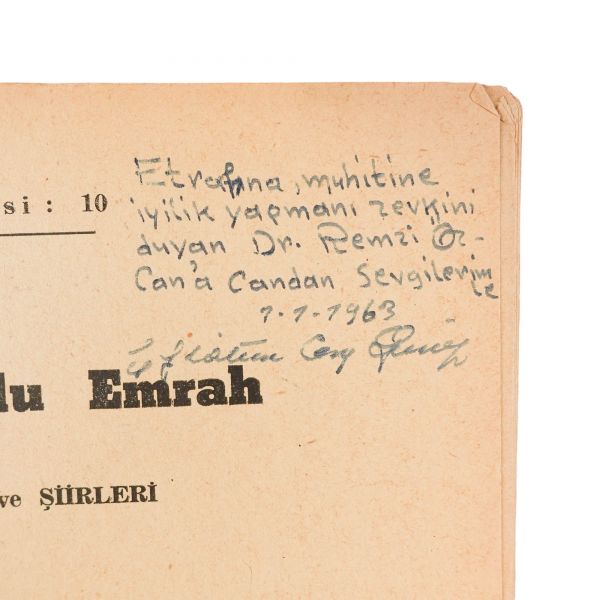 Etrafına, muhitine
si : 10
iyilik yapmanı zevkini
duyan Dr. Remzi Öz-
Can'a Candan Sevgilerim
le
1-1-1963
Eflatun Cem Güney
lu Emrah
ve ŞİİRLERİ